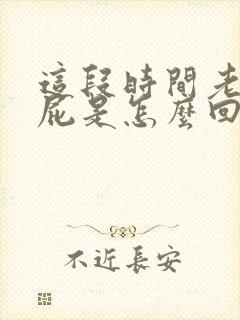 這段時間老
屁是怎麼回
不近長安